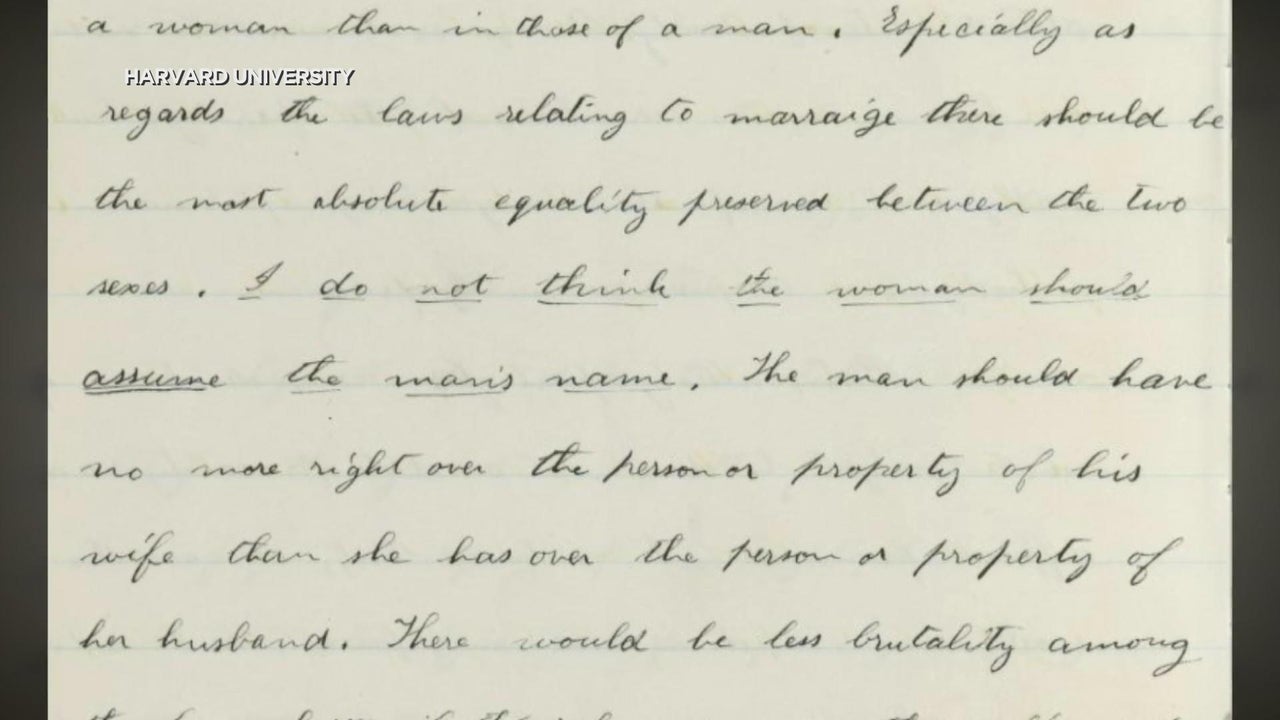 a woman than in those of a man. Especially as
HARVARD UNIVERSITY
regards the laws relating to marraige there should be
the most absolute equality preserved between the two
sexes. I do not think the woman should
assume the man's name. The man should have
no more right over the person or property of his
wife than she has over the person or property of
her husband. There would be less brutality among